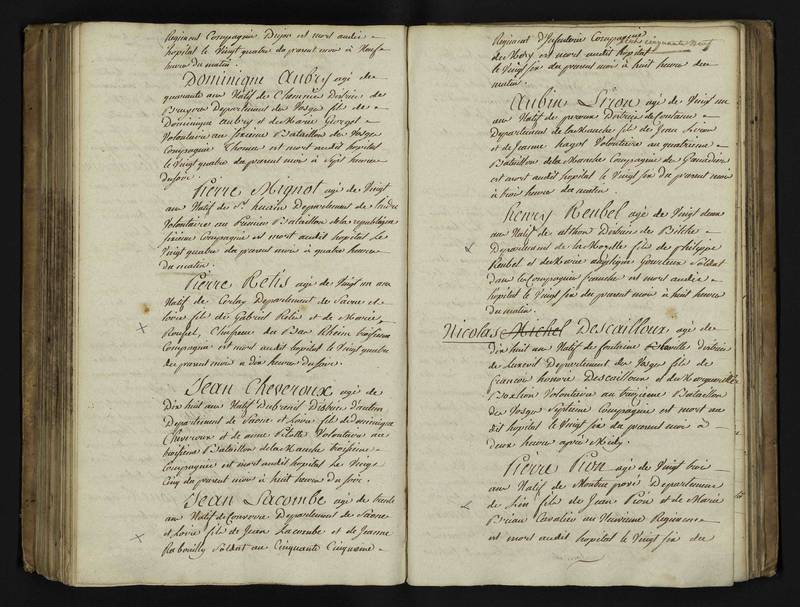 Regiment Compagnie Dujon est mort audit
hopital le Vingt quatre du present mois à Neuf
heure du matin.
Dominique Aubry agé de
quarante ans Natif de District de
Bruyere Departement des Vosge fils de
Dominique aubry et de Marie Georgel
Volontaire au sixieme Bataillon des Vosge
Compagnie Thomas est mort audit hopital
le Vingt quatre du present mois à Sept heure
du soir.
Pierre Mignol agé de Vingt
ans Natif de St. Departement de Lindre
Volontaire au Premier Bataillon de la republique
sixieme Compagnie est mort audit hopital Le
Vingt quatre du present mois à quatre heure
du matin.
Pierre Retis agé de Vingt un ans
Natif de Departement de Saone et
Loire fils de Gabriel Retis et de Marie
Chasseur du Bas Rhein troisieme
Compagnie est mort audit hopital le Vingt quatre
du present mois à dix heure du soir.
Jean Cheveroux agé de
Dix huit ans Natif District d'autun
Departement de Saone et Loire fils de Dominique
Cheveroux et de anne Pilotte Volontaire au
troisieme Bataillon de la Manche troisieme
Compagnie est mort audit hopital Le Vingt
Cinq du present mois à huit heure du soir.
Jean Lacombe agé de trente
ans Natif de Departement de Saone
et Loire fils de Jean Lacombe et de Jeanne
Rabouilly Soldat au Cinquante Cinquieme
cent cinquante Neuf
Regiment d'Infanterie Compagnie
est mort audit hopital
le Vingt six du present mois à huit heure du
matin.
Aubin Liron agé de Vingt un
ans Natif de District de
Departement de la Manche fils de Jean Liron
et de Jeanne hagot Volontaire au quatrieme
Bataillon de la Manche Compagnie de
est mort audit hopital le Vingt six du present mois
à trois heure du matin.
henry Reubel agé de Vingt deux
ans Natif de District de Bitche
Departement de la Mozelle fils de philippe
Reubel et de Marie Soldat
dans la Compagnie franche est mort audit
hopital le Vingt six du present mois à huit heure
du matin.
Nicolas Michel Descailloux agé de
dix huit ans Natif de fontaine district
de Luxeuil Departement des Vosge fils de
francois honoré Descailloux et de Marguerite
Volontaire au troisieme Bataillon
des Vosge Septieme Compagnie est mort au
dit hopital le Vingt six du present mois à
deux heure après Midy.
Pierre Pion agé de Vingt trois
ans Natif de Departement
de fils de Jean Pion et de Marie
Brian Cavalier au Neuvieme Regiment
est mort audit hopital le Vingt six du